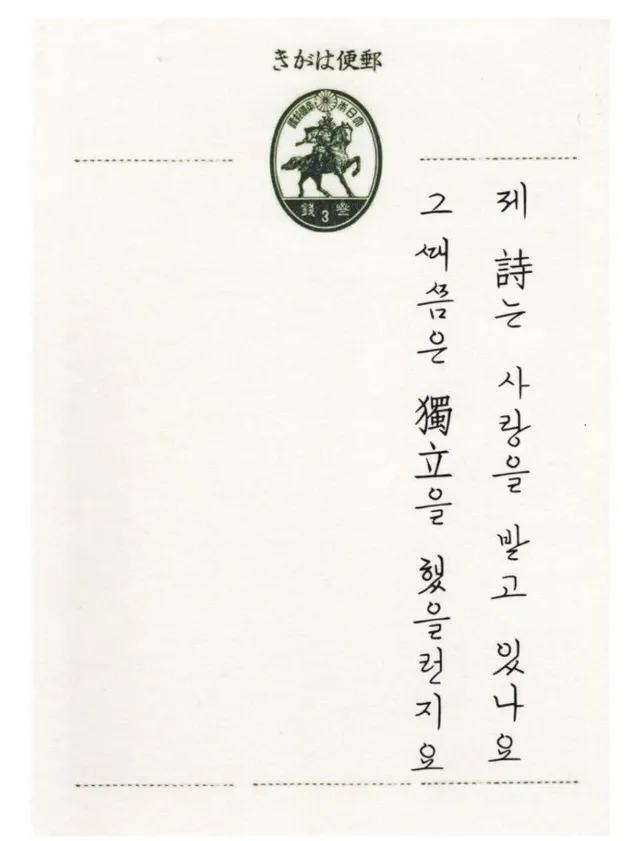 きがは便郵
本日大
錢 3 參
제 詩는 사랑을 받고 있나요
그 때쯤은 獨立을 했을런지요